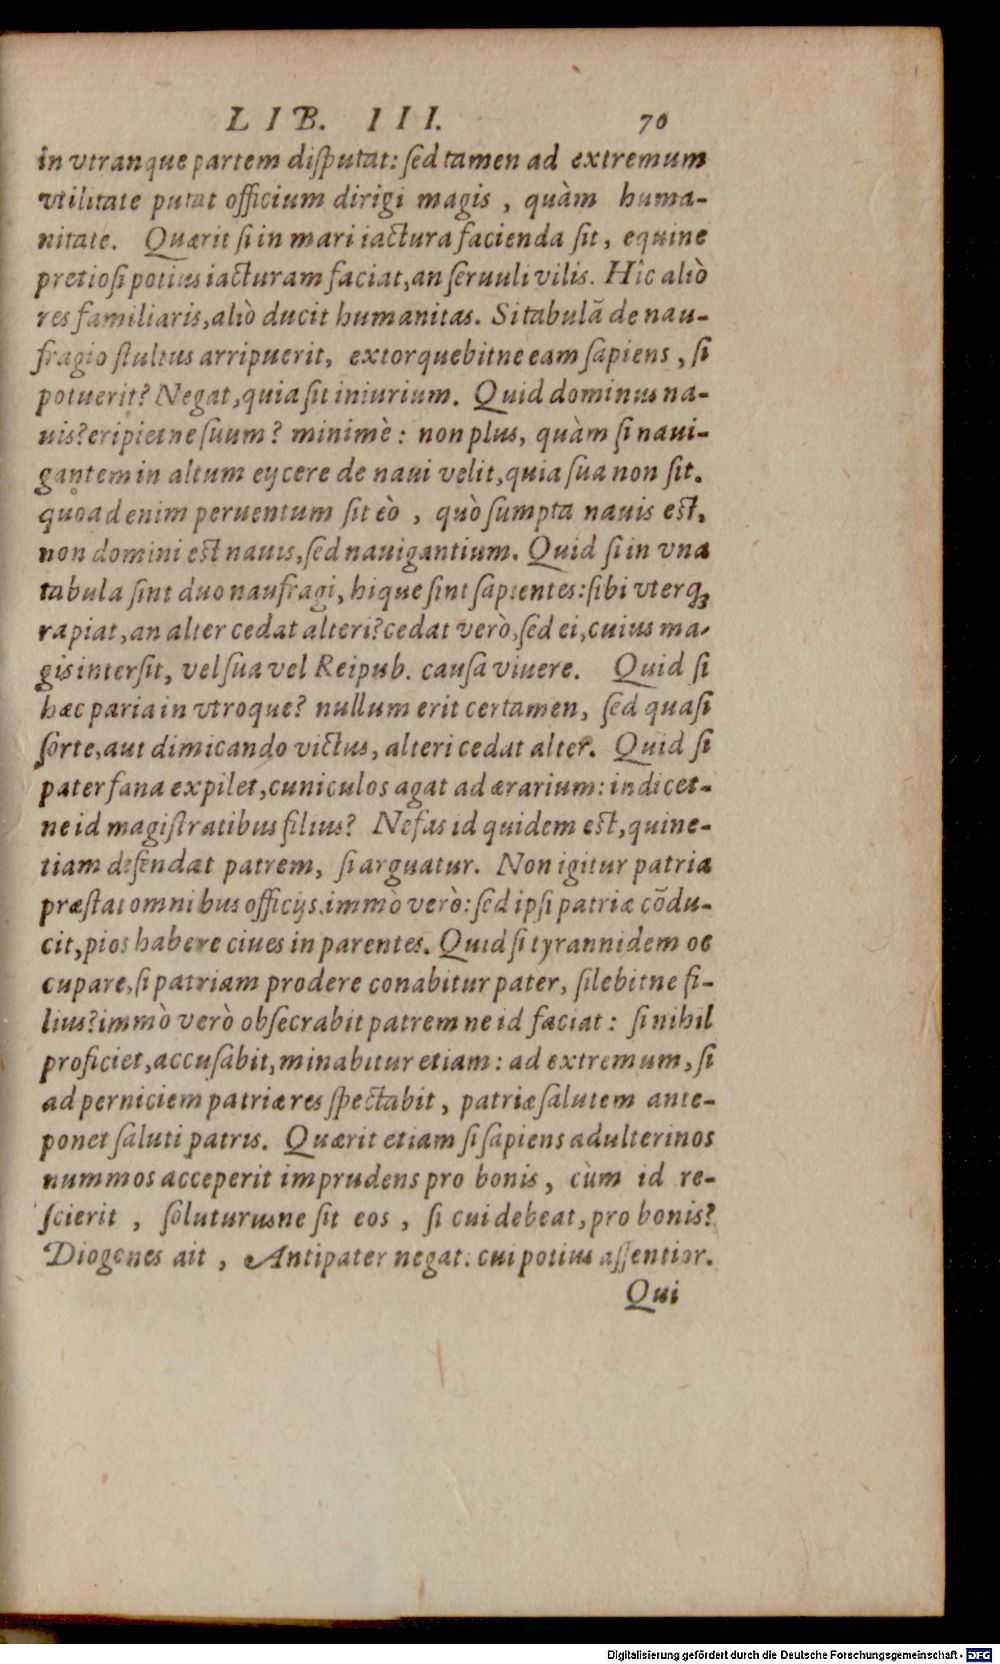 LIB. III. 70
in vtranque partem diſputat: ſed tamen ad extremum
vtilitate putat officium dirigi magis, quàm huma-
nitate. Quærit ſi in mari iactura facienda ſit, equine
pretioſi potius iacturam faciat, an ſeruuli vilis. Hîc aliò
res familiaris, aliò ducit humanitas. Si tabulã de nau-
fragio ſtultus arripuerit, extorquebitne eam ſapiens, ſi
potuerit? Negat, quia ſit iniurium. Quid dominus na-
uis? eripietne ſuum? minimè: non plus, quàm ſi naui-
gantem in altum eijcere de naui velit, quia ſua non ſit.
quoad enim peruentum ſit eò, quò ſumpta nauis eſt,
non domini eſt nauis, ſed nauigantium. Quid ſi in vna
tabula ſint duo naufragi, hique ſint ſapientes: ſibi vterq;
rapiat, an alter cedat alteri? cedat verò, ſed ei, cuius ma-
gis interſit, vel ſua vel Reipub. cauſa viuere. Quid ſi
hæc paria in vtroque? nullum erit certamen, ſed quaſi
ſorte, aut dimicando victus, alteri cedat alter. Quid ſi
pater fana expilet, cuniculos agat ad ærarium: indicet-
ne id magiſtratibus filius? Nefas id quidem eſt, quine-
tiam defendat patrem, ſi arguatur. Non igitur patria
præſtat omnibus officijs. immò verò: ſed ipſi patriæ cõdu-
cit, pios habere ciues in parentes. Quid ſi tyrannidem oc
cupare, ſi patriam prodere conabitur pater, ſilebitne fi-
lius? immò verò obſecrabit patrem ne id faciat: ſi nihil
proficiet, accuſabit, minabitur etiam: ad extremum, ſi
ad perniciem patriæ res ſpectabit, patriæ ſalutem ante-
ponet ſaluti patris. Quærit etiam ſi ſapiens adulterinos
nummos acceperit imprudens pro bonis, cùm id re-
ſcierit, ſoluturusne ſit eos, ſi cui debeat, pro bonis?
Diogenes ait, Antipater negat. cui potius aſſentior.
Qui
Digitalisierung gefördert durch die Deutsche Forschungsgemeinschaft - DFG